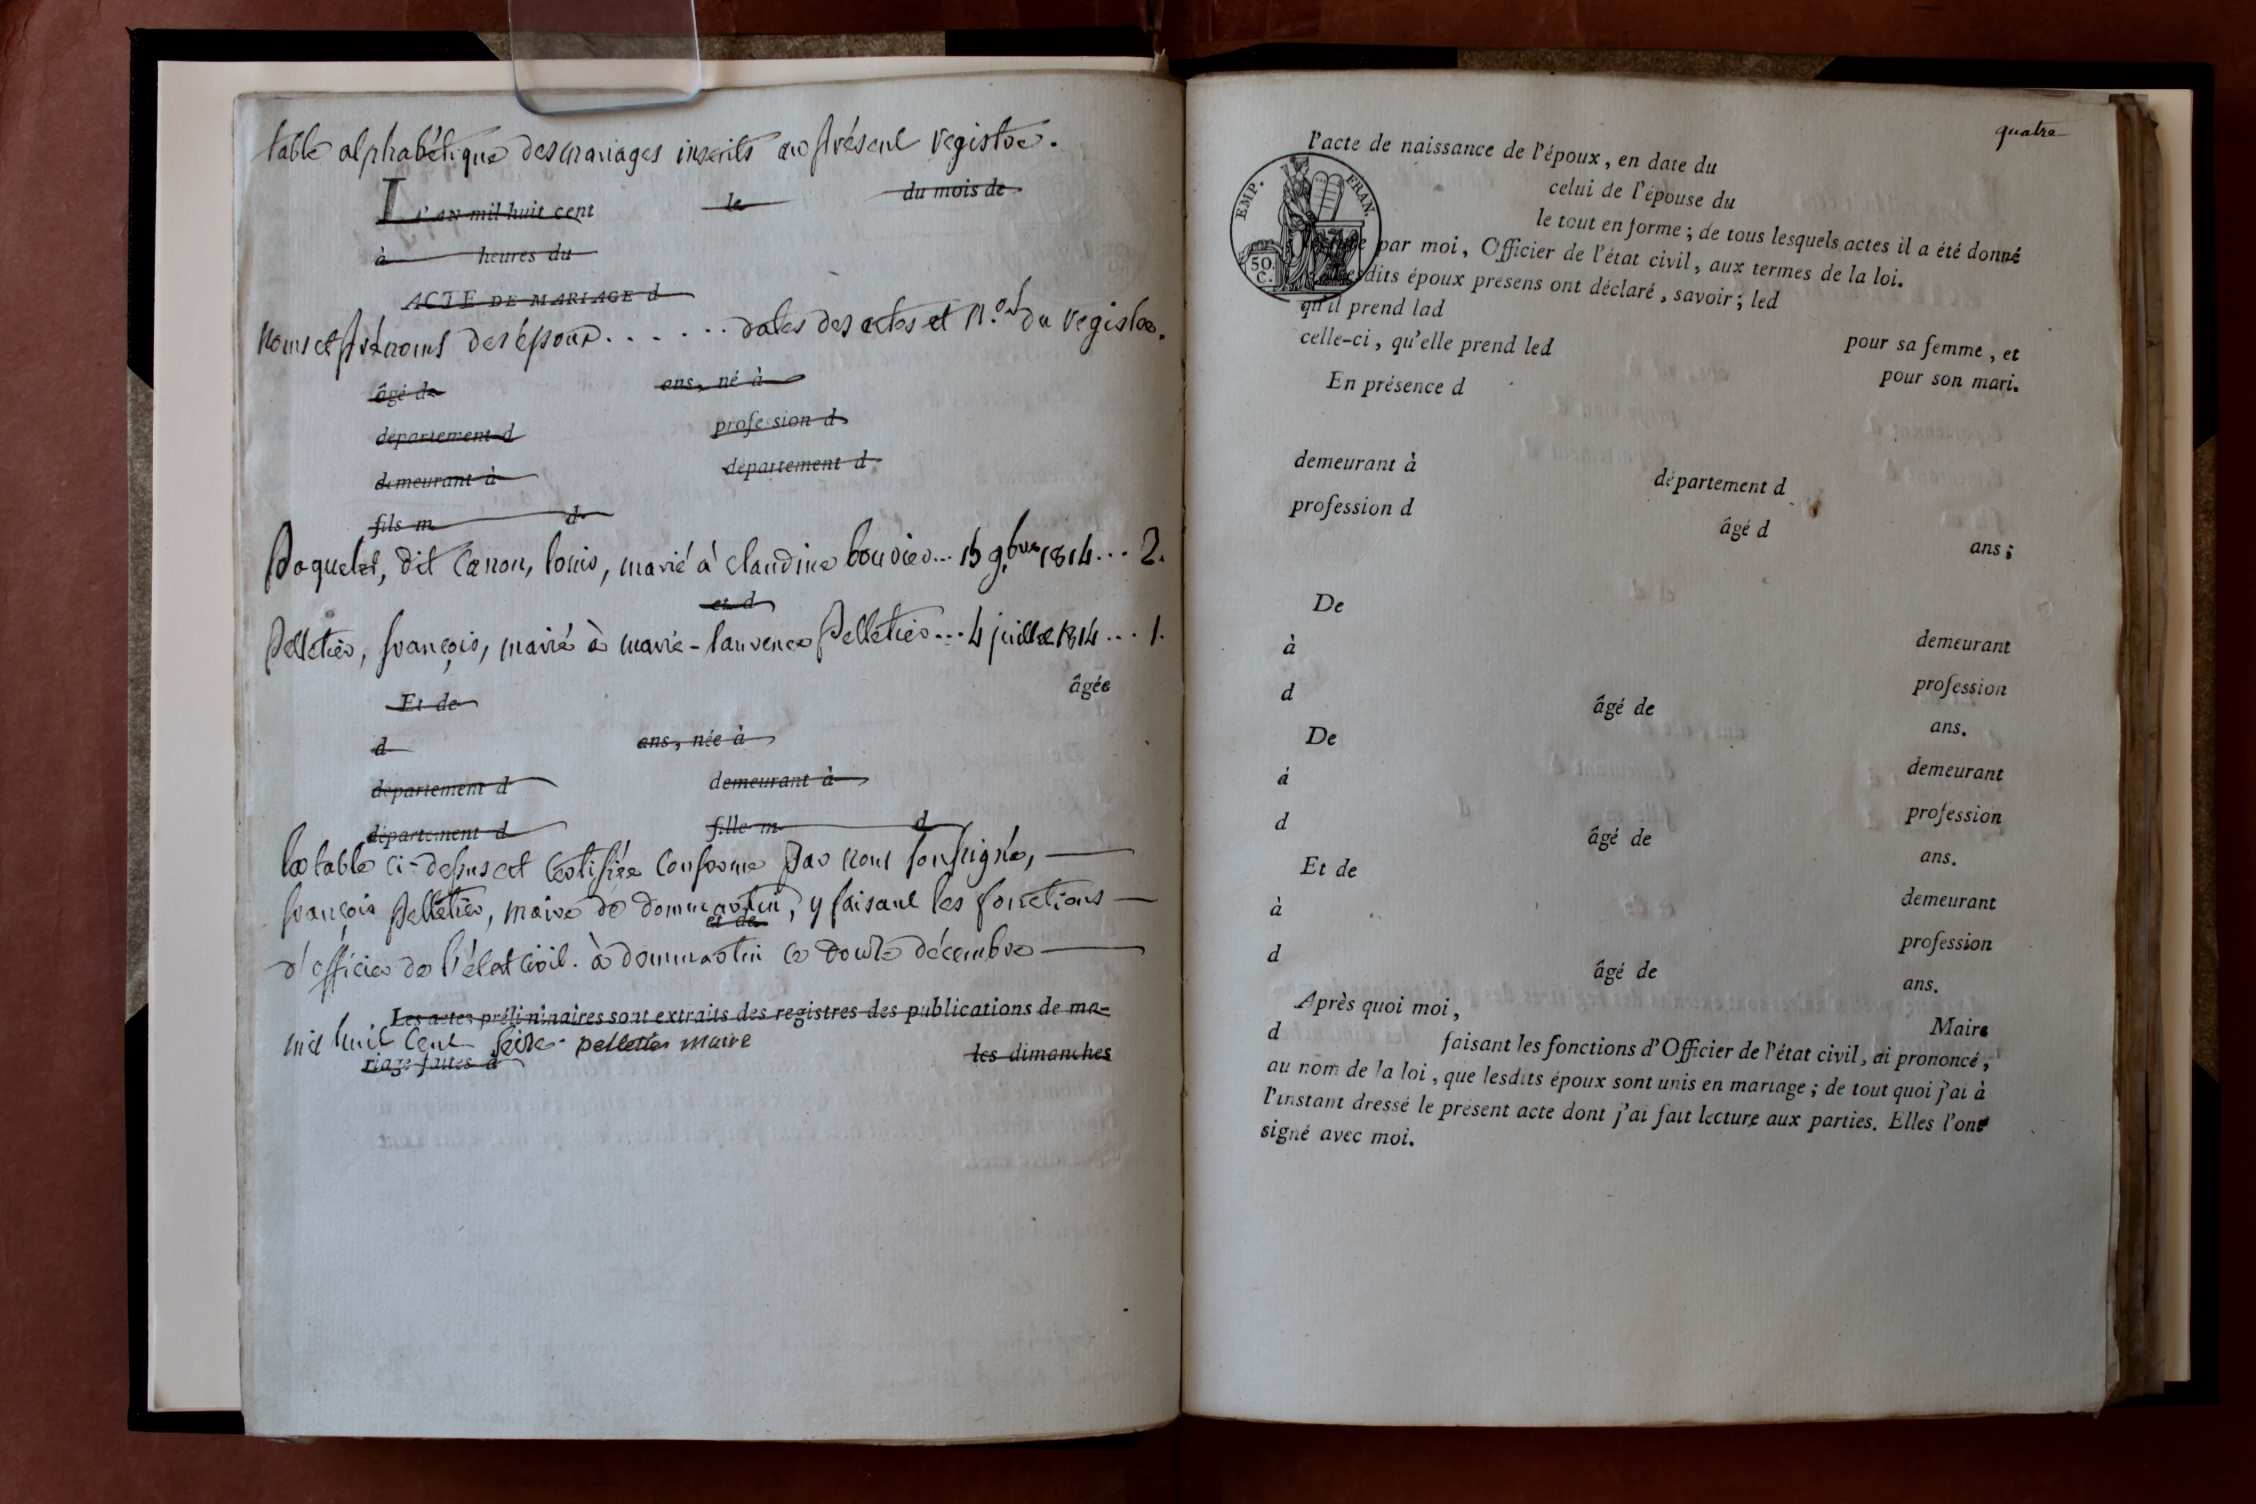 table alphabétique des mariages inscrits au présent registre.
L'AN mil huit cent le du mois de
à heures du
ACTE DE MARIAGE d
noms et prénoms des époux. . . . . . . dates des actes et n.os du registre.
âgé de ans, né à
département d profession d
demeurant à département d
fils m d
Paquelet, dit Canon, louis, marié à claudine bouvier... 15 9.bre 1814... 2.
et d
Pelletier, françois, marié à marie-laurence Pelletier... 4 juillet 1814... 1.
âgée
Et de
d ans, née à
département d demeurant à
département d fille m d
la table ci-dessus est certifiée conforme par nous soussigné,
françois pelletier, maire de dommartin, y faisant les fonctions
et de
d'officier de l'état civil. à dommartin ce douze décembre
Les actes préliminaires sont extraits des registres des publications de ma-
mil huit cent pelletier maire
riage faites à les dimanches
quatre
l'acte de naissance de l'époux, en date du
celui de l'épouse du
le tout en forme; de tous lesquels actes il a été donné
par moi, Officier de l'état civil, aux termes de la loi.
dits époux présens ont déclaré, savoir; led
EMP. FRAN.
50.
C.
qu'il prend lad pour sa femme, et
celle-ci, qu'elle prend led pour son mari.
En présence d
demeurant à département d
profession d âgé d ans;
De demeurant
à profession
d âgé de ans.
De demeurant
à profession
d âgé de ans.
Et de demeurant
à profession
d âgé de ans.
Après quoi moi, Maire
d faisant les fonctions d'Officier de l'état civil, ai prononcé,
au nom de la loi, que lesdits époux sont unis en mariage; de tout quoi j'ai à
l'instant dressé le présent acte dont j'ai fait lecture aux parties. Elles l'ont
signé avec moi.